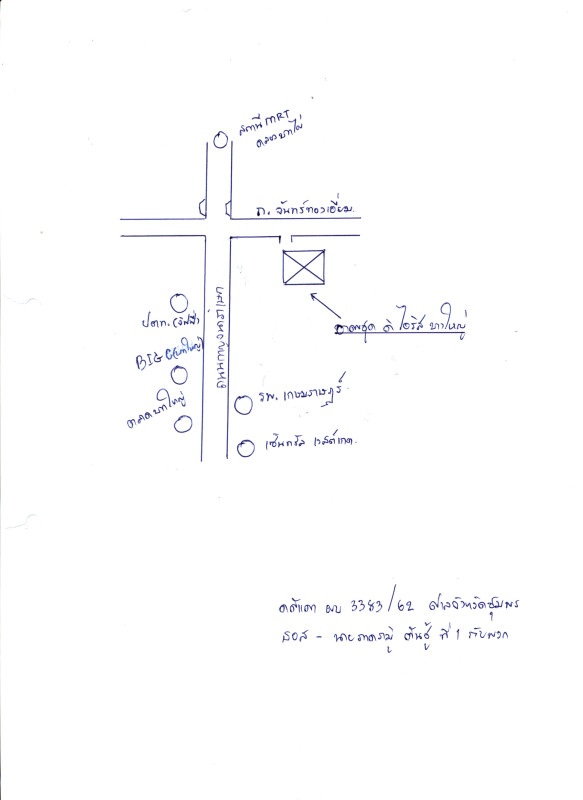 สถานี MRT
ตลาดบางใหญ่
ถ. จันทร์ทองเอี่ยม.
ถนนกาญจนาภิเษก
ปตท.
BIG C (บางใหญ่)
ตลาดบางใหญ่
อาคารชุด ดิ ไอริส บางใหญ่
รพ. เกษมราษฎร์
เซ็นทรัล เวสต์เกต.
ผบ 3383/62 ศาลจังหวัดชุมพร
- นาย ที่ 1 กับพวก